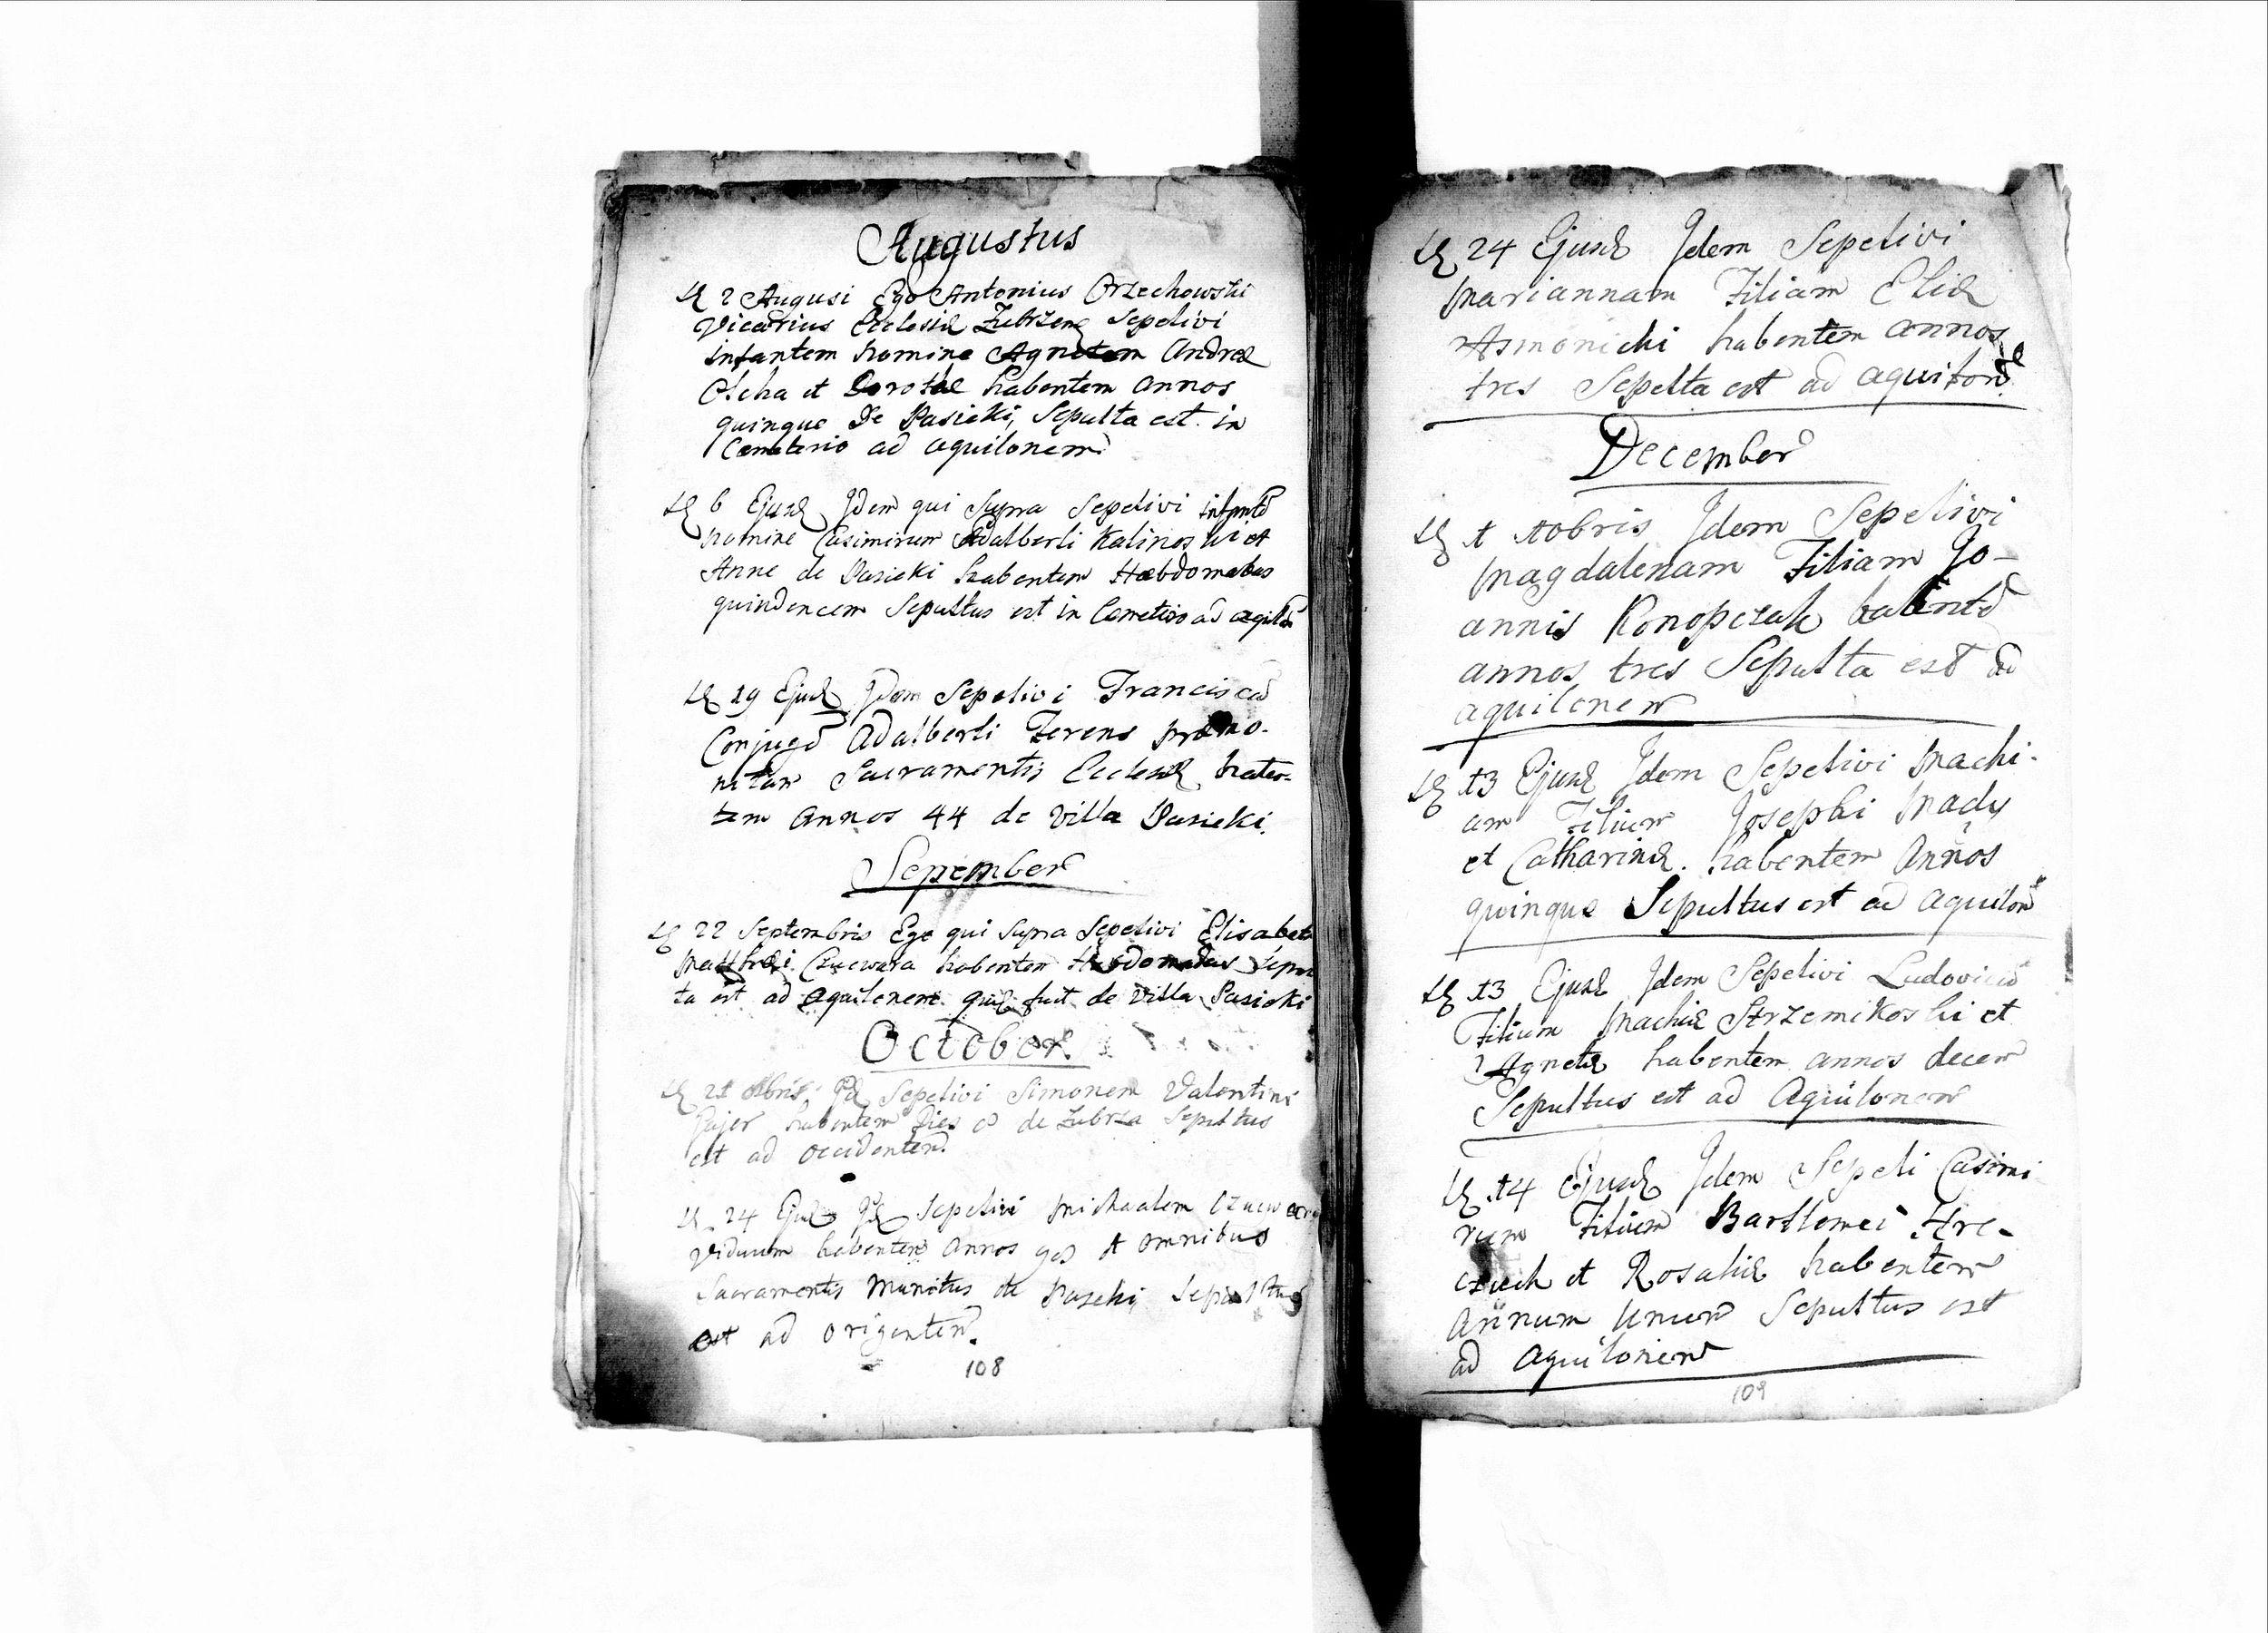 Augustus
2 Augusi Ego Antonius Orzechowski
Vicarius Ecclesiæ Zubrzenę Sepelivi
infantem Nomine Agnetem Andreæ
Olcha et Dorotæ habentem annos
quinque De Pasieki, Sepulta est in
Cemeterio ad aquilonem
6 Ejusd Idem qui Supra Sepelivi
Nomine Casimirum Adalberti Kalinoski et
Anne de Pasieki habentem Hæbdomabas
quindencem Sepultus est in Cemeterio ad
19 Ejusd Idem Sepelivi Francisca
Conjuge Adalberti Ferens præmo-
nitam Sacramentis Ecclesiæ
tem annos 44 de villa Pasieki.
Sepember
22 Septembris Ego qui Supra Sepelivi Elisabet
Matthæi Czucwara habentem Hebdomadas Sepu
ta est ad aquilonem quæ fuit de villa Pasieki
October
21 Sepelivi Simonem Valentini
Gajer habentem Dies de Zubrza Sepultus
est ad occidentem.
24 Ejusd Sepelivi Michaalem
Viduum habentem annos omnibus
Sacramentis Munitus de Paseki Sepultus
est ad origentem.
108
24 Ejusd Idem Sepelivi
Mariannam Filiam Eliæ
habentem annos
tres Sepelta est ad
December
Idem Sepelivi
Magdalenam Filiam Jo-
annis Konopczak
annos tres Sepulta est ad
aquilonem
13 Ejusd Idem Sepelivi Machi-
am Filium Josephi Mady
et Catharinæ. habentem Annos
quinque Sepultus est ad aquilon
13 Ejusd Idem Sepelivi
Filium Machiæ Strzemikoski et
Agnetæ habentem annos decem
Sepultus est ad Aquilonem
14 Ejusd Idem Sepeli Casimi
rum Filium Bartlomei Hre-
czuch et Rosaliæ habentem
Annum Unum Sepultus est
ad aquilonem
109